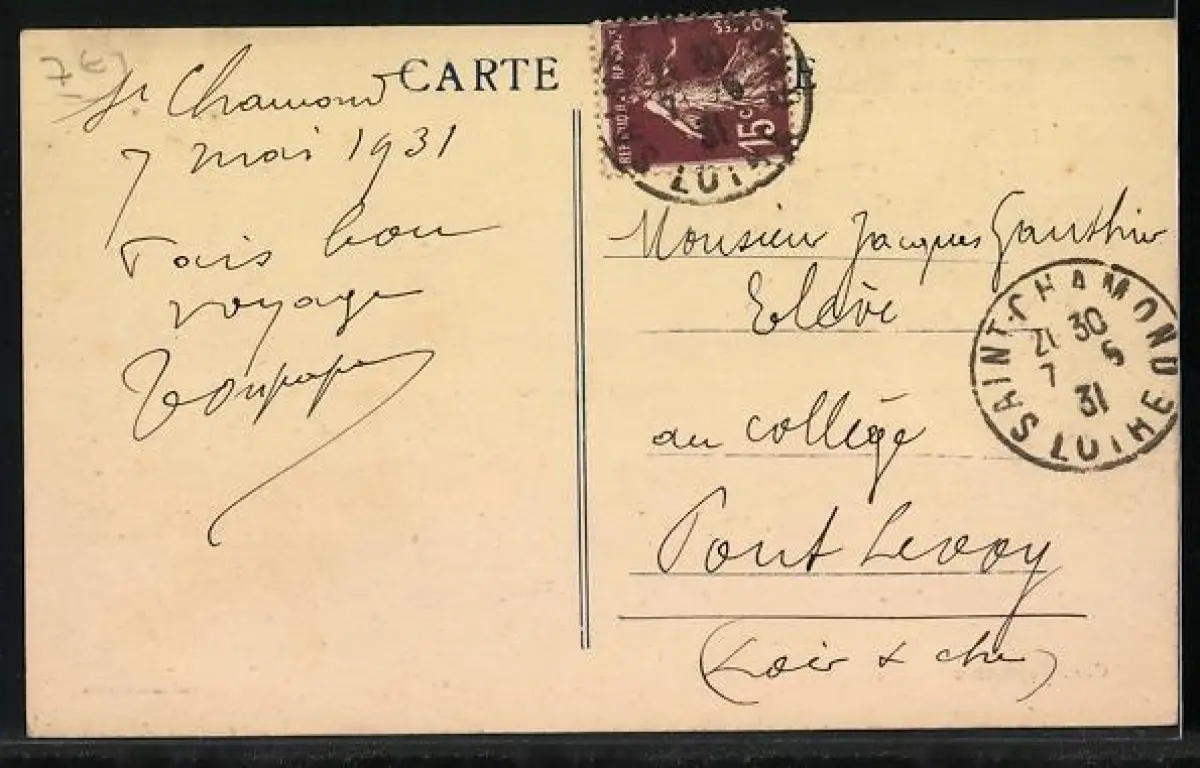 7€
CARTE
E
15c
LOIRE
St Chamond
7 mai 1931
Fais bon
voyage
Monsieur Jacques Gauthier
Elève
au collège
Pont Levoy
(Loir & cher)
SAINT-CHAMOND
21 30
7 5
31
LOIRE